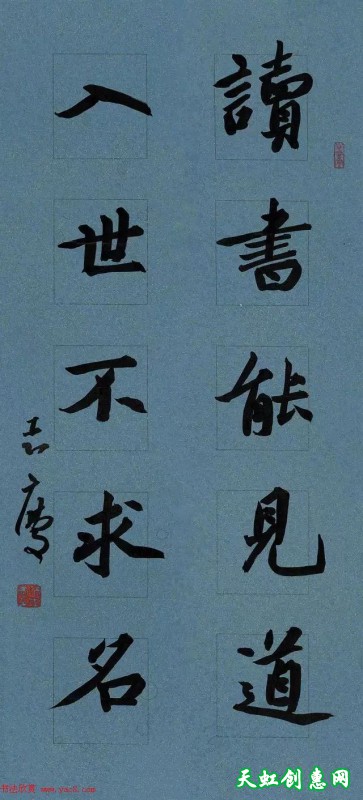 讀書能見道
入世不求名
天虹创惠网
书法欣赏 www.yac8.com